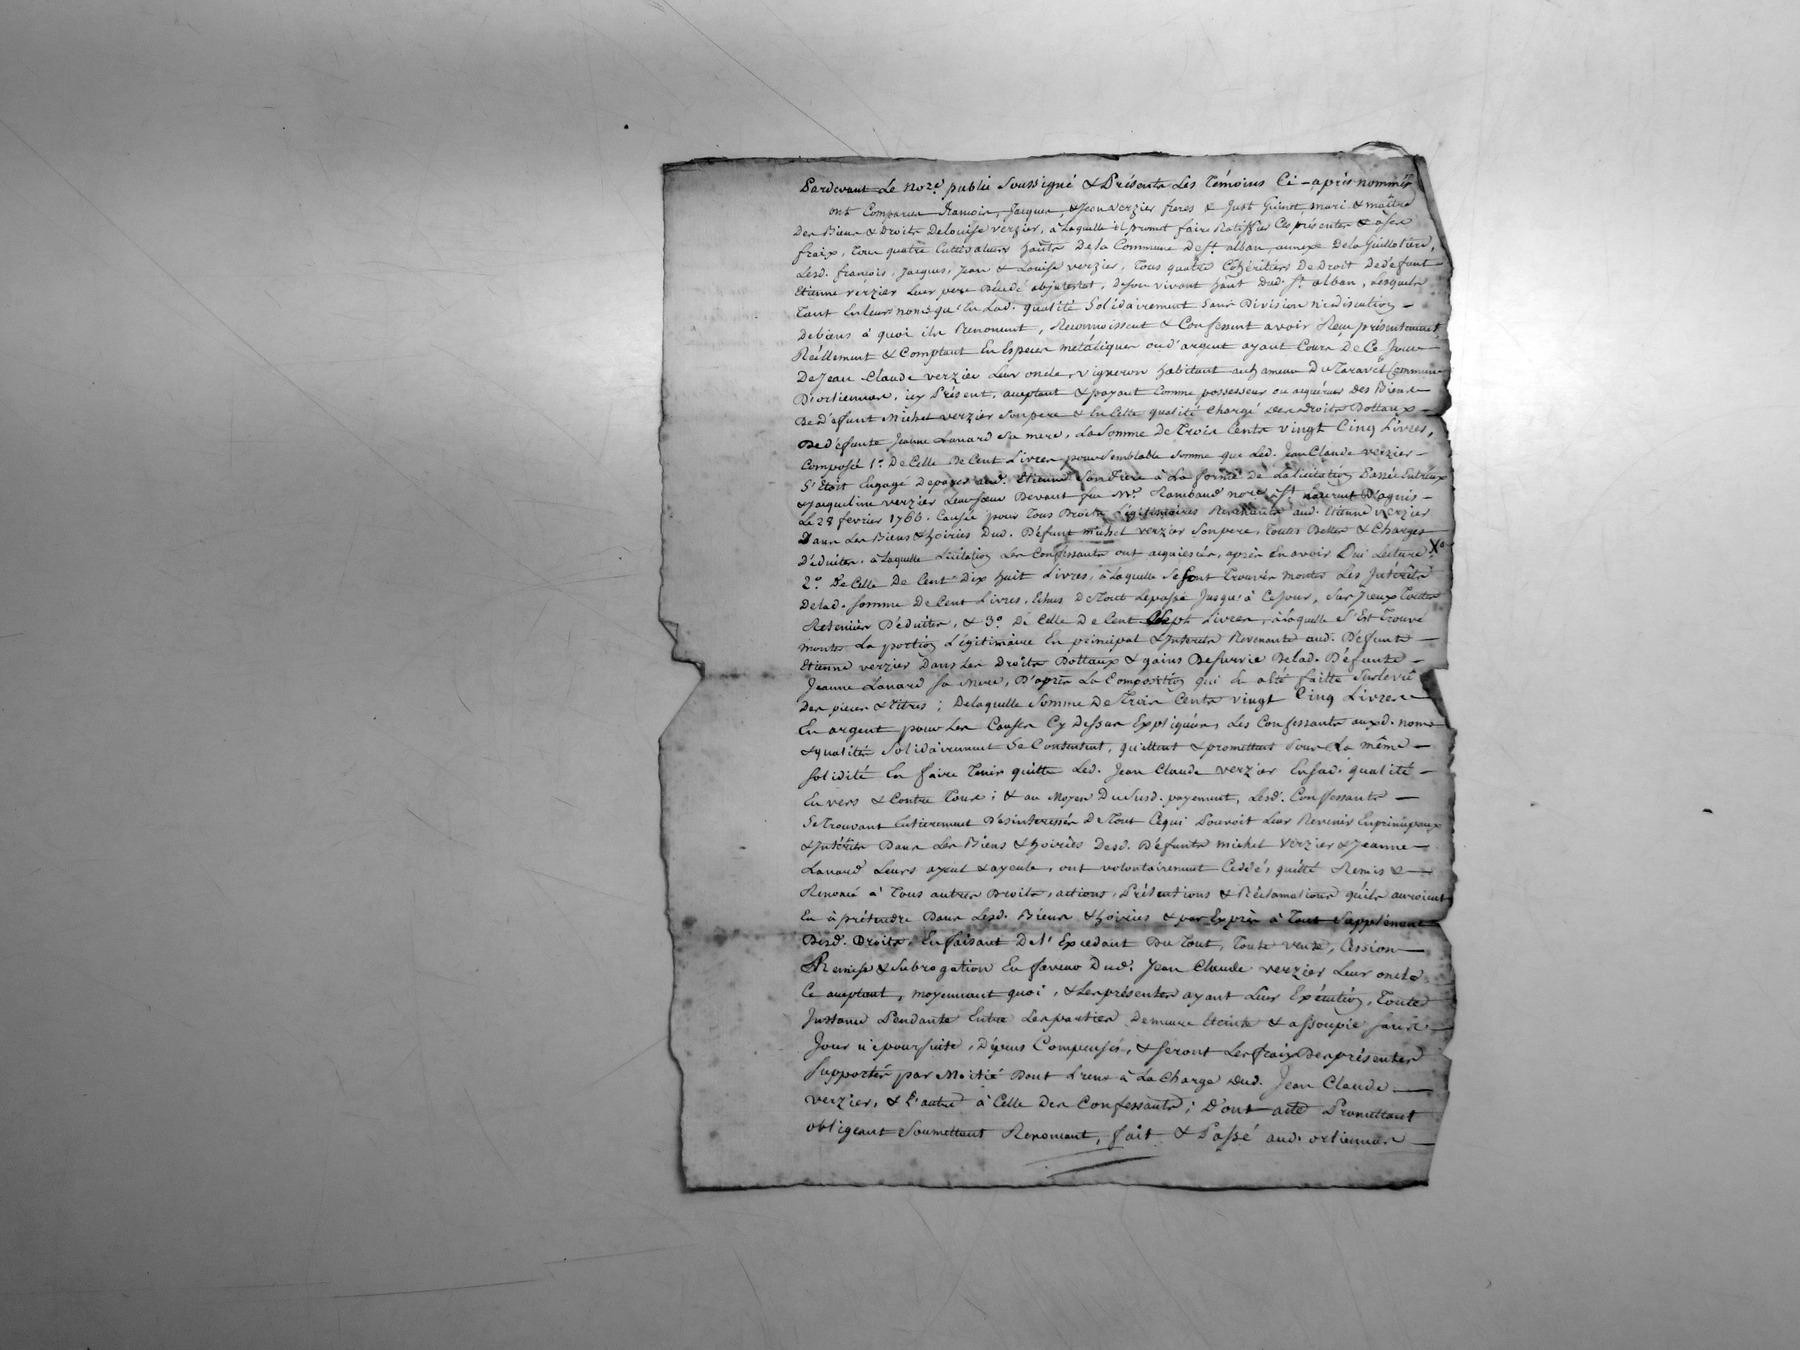 Pardevant Le No.re public Soussigné & Présents Les Témoins Ci-après nommés
ont Comparu françois, Jacques, & Jean verzier freres & Just Guinet mari & maître
Des Biens & Droits Delouise verzier, à Laquelle il promet faire Ratiffier Ces présentes & à ses
fraix, Tous quatre Cultivateurs habts De la Commune De St. alban, annexe De la Guillotiere,
Lesd. françois, Jacques, Jean & Louise verzier, Tous quatre Cohéritiers De Droit De défunt
Etienne verzier Leur pere Décédé abjntestat, de son vivant habt. Dud. St. alban, Lesquels
Tant En leurs noms qu'En Lad. qualité Solidairement Sans Division ni discution
De biens à quoi ils Renoncent, Reconnoissent & Confessent avoir Reçu présentement,
Réellement & Comptant En Espèces métaliques ou d'argent ayant Cours De Ce Jour
De Jean Claude verzier Leur oncle, vigneron habitant au hameau Du Taravet Commune
D'orliennas, icy Présent, acceptant & payant Comme possesseur ou acquéreur des Biens
De défunt Michel verzier Son pere & En Cette qualité Chargé Des droits Dottaux
De défunte Jeanne Lanard Sa mere, La Somme De Trois Cents vingt Cinq Livres,
Composée 1.° De Celle De Cent Livres pour Semblable Somme que Led. Jean Claude verzier
S'étoit Engagé De payer aud. Etienne Son frere à La forme de La licitation Passée Entr'eux
& Jacqueline verzier Leur Sœur Devant feu Mr. Rambaud nore. à St. Laurent D'agnis
Le 28 fevrier 1766. Causée pour Tous Droits Légitimaires Revenants aud. Etienne verzier
Dans Les Biens & hoiries Dud. Défunt michel verzier Son pere, Toutes Dettes & Charges
Déduites, à Laquelle Licitation Les Confessants ont acquiescés, après En avoir Oui Lecture, X
2.° De Celle De Cent Dix huit Livres, à Laquelle Se Sont Trouvés monter Les Jntérêts
De lad. Somme De Cent Livres, Echus De Tout Le passé Jusqu'à Ce Jour, Sur Jceux Toutes
Retenües Déduites, & 3.° De Celle De Cent Sept Livres, à Laquelle S'Est Trouvé
monter La portion Légitimaire En principal & Jnterets Revenants aud. Défunt
Etienne verzier Dans Les Droits Dottaux & gains De Survie De lad. Défunte
Jeanne Lanard Sa Mere, D'après La Composition qui En a été faitte Sur le vû
Des pieces & titres ; De laquelle Somme De Trois Cents vingt Cinq Livres
En argent pour Les Causes Cy Dessus Expliquées, Les Confessants auxd. noms
& qualités Solidairement Se Contentent, quittent & promettent Sous La même
Solidité En faire Tenir quitte Led. Jean Claude verzier En Sad. qualité
En vers & Contre Tous ; & au Moyen Du Susd. payement, Lesd. Confessants
Se Trouvant Entierement Désinteressés De Tout Ce qui Pouvoit Leur Revenir En principaux
& Jntérêts Dans Les Biens & hoiries Desd. Défunts michel verzier & Jeanne
Lanard Leurs ayeul & ayeule, ont volontairement Ceddé, quitté Remis &
Renoncé à Tous autres Droits, actions, Prétentions & Réclamations qu'ils auroient
Eu à prétendre Dans Lesd. Biens & hoiries & par Exprès à Tout Supplément
Desd. Droits, En faisant De l'Excedant Du Tout, Toute vente, Cession
Remise & Subrogation En faveur Dud. Jean Claude verzier Leur oncle
Ce acceptant, moyennant quoi, & Les présentes ayant Leur Exécution, Toute
Jnstance Pendante Entre Les parties Demeure éteinte & assoupie Sans
Jour ni poursuite, Dépens Compensés, & Seront Les fraix Des présentes
Supportés par Moitié Dont L'une à La Charge Dud. Jean Claude
verzier, & L'autre à Celle Des Confessants ; D'ont acte Promettant
obligeant Soumettant Renoncant, fait & Passé aud. orliennas